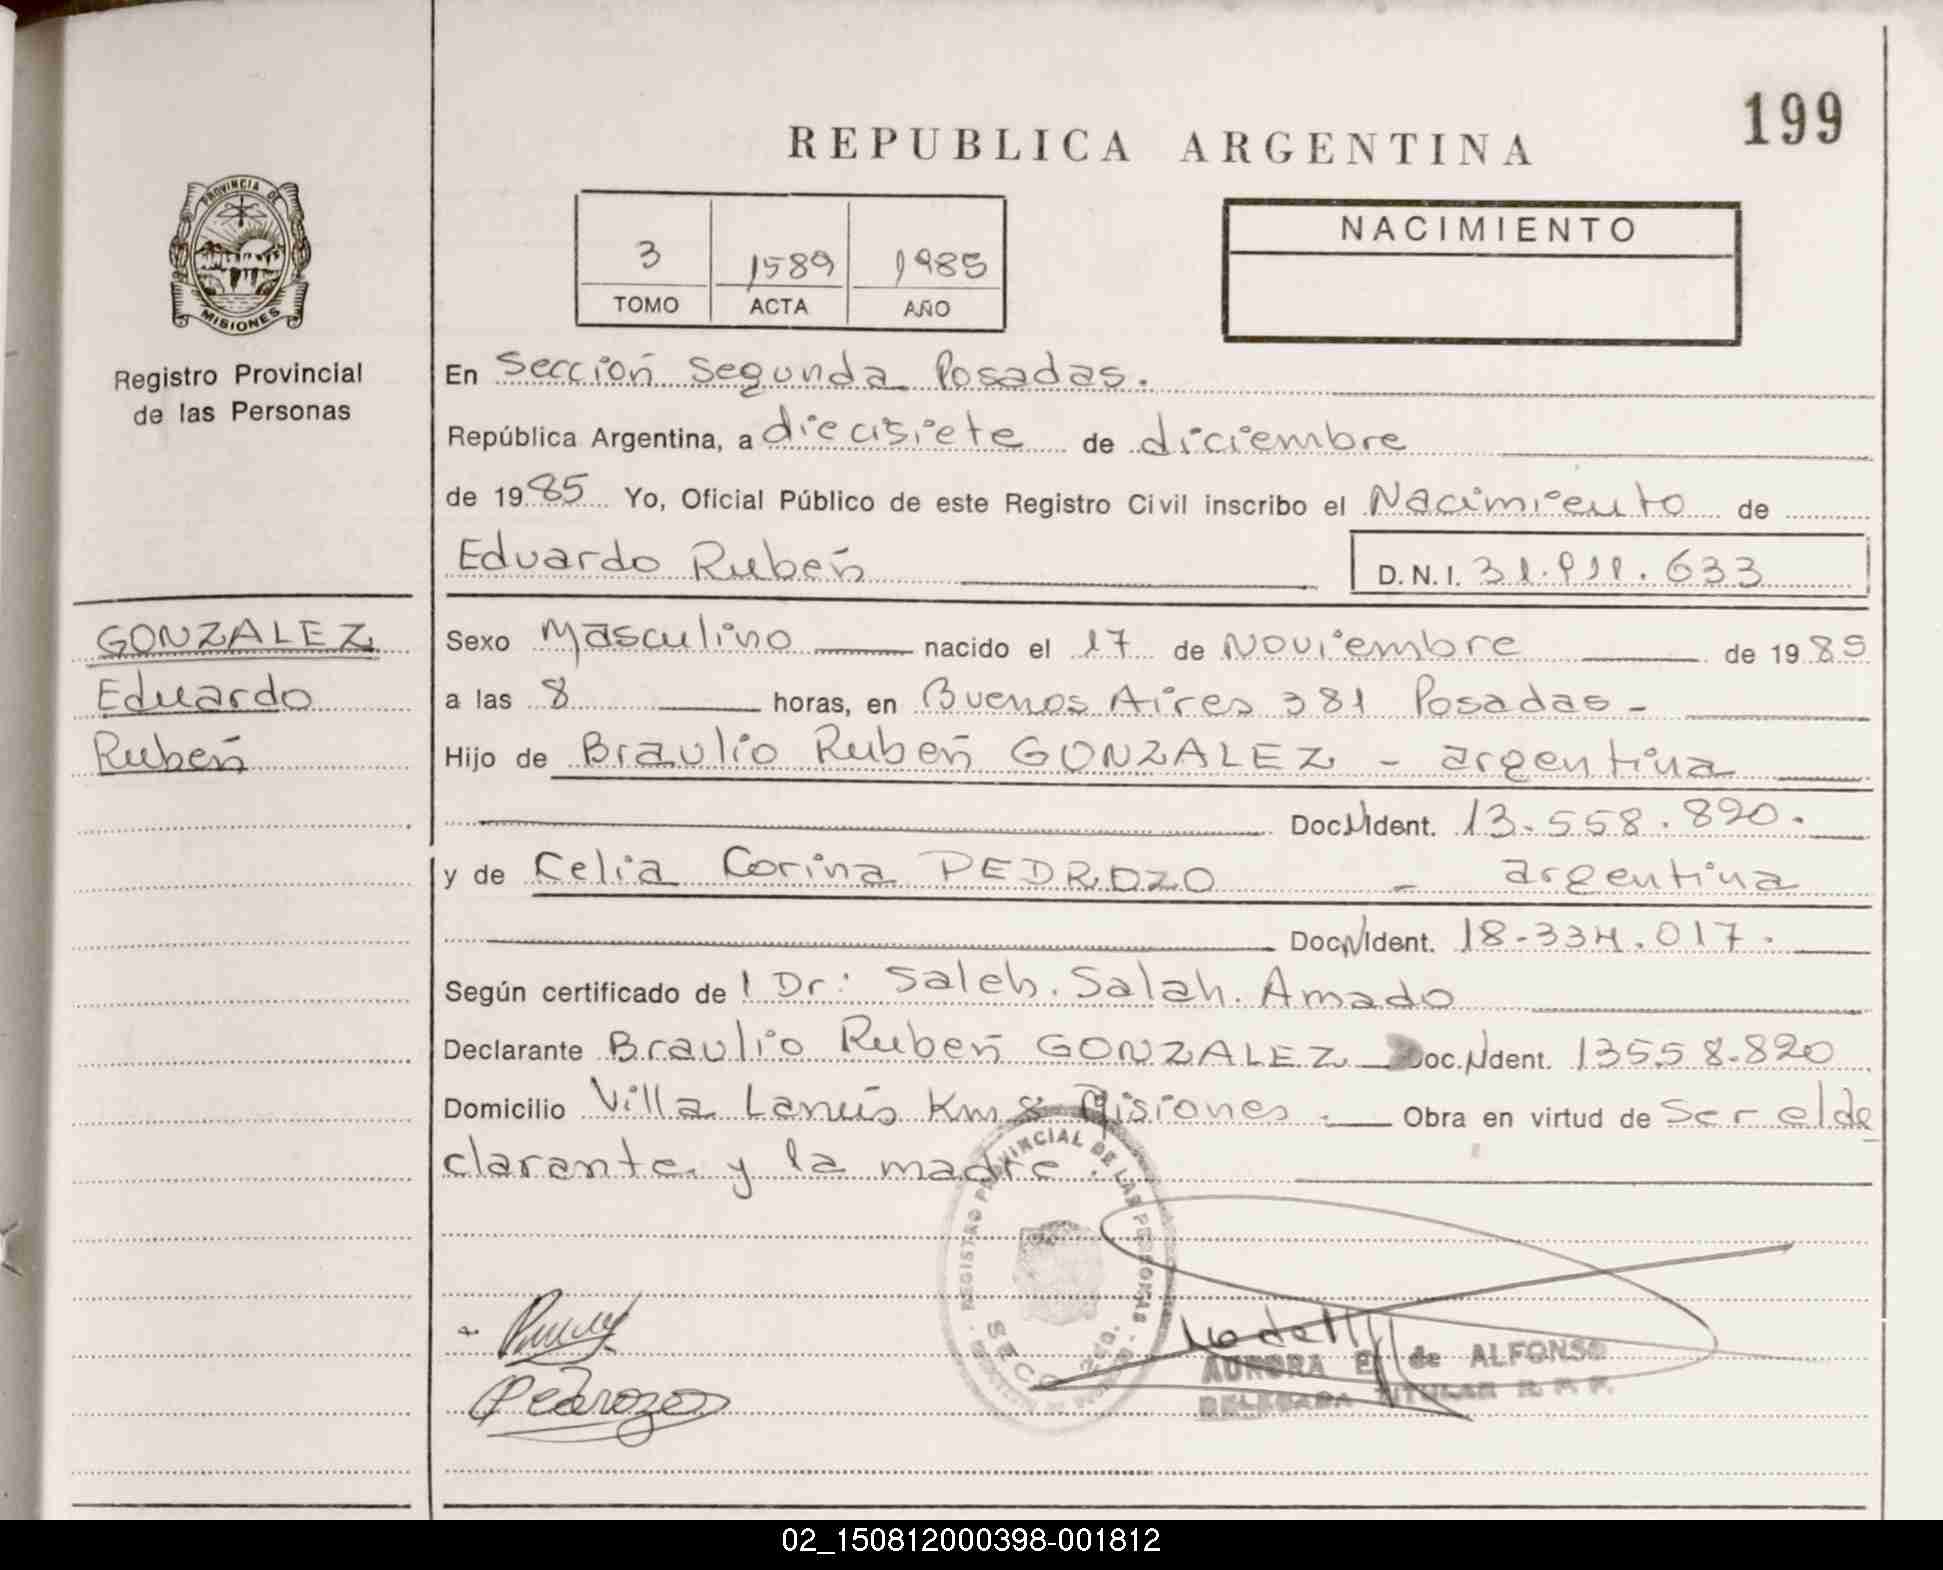 199
REPUBLICA ARGENTINA
PROVINCIA DE
MISIONES
Registro Provincial
de las Personas
3 1589 1985
TOMO ACTA AÑO
NACIMIENTO
En Sección Segunda Posadas.
República Argentina, a diecisiete de diciembre
de 1985 Yo, Oficial Público de este Registro Civil inscribo el Nacimiento de
Eduardo Rubén D.N.I. 633
GONZALEZ
Eduardo
Rubén
Sexo Masculino nacido el 17 de Noviembre de 1985
a las 8 horas, en Buenos Aires 381 Posadas -
Hijo de Braulio Rubén GONZALEZ - argentina
Doc. N Ident. 13.558.820.
y de Celia Corina PEDROZO - argentina
Doc. N Ident. 18-334.017.
Según certificado de l Dr: Saleh. Salah. Amado
Declarante Braulio Rubén GONZALEZ Doc. N Ident. 13558.820
Domicilio Villa Lanús Km 8 Misiones. Obra en virtud de Ser el de
clarante y la madre.
REGISTRO PROVINCIAL DE LAS PERSONAS
SECC.
Pedrozo
AURORA E. de ALFONSO
DELEGADA TITULAR R. P. P.
02_150812000398-001812